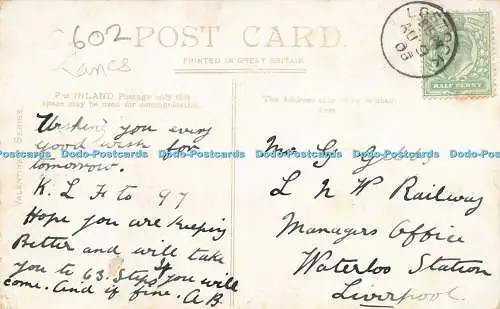 6602
Lancs
POST CARD.
PRINTED IN GREAT BRITAIN
For INLAND Postage only this
space may be used for communication.
The Address only to be written
here
VALENTINE'S SERIES
HALF PENNY
LOSTOCK
AU 9
05
Wishing you every
good wish for
tomorrow.
K. L. H to 97
Hope you are keeping
Better and will take
you to 63. Steps if you will
come. And if fine. A.B.
Mr G.
L N W Railway
Managers Office
Waterloo Station
Liverpool.
Dodo-Postcards Dodo-Postcards Dodo-Postcards Dodo-Postcards Dodo-Postcards